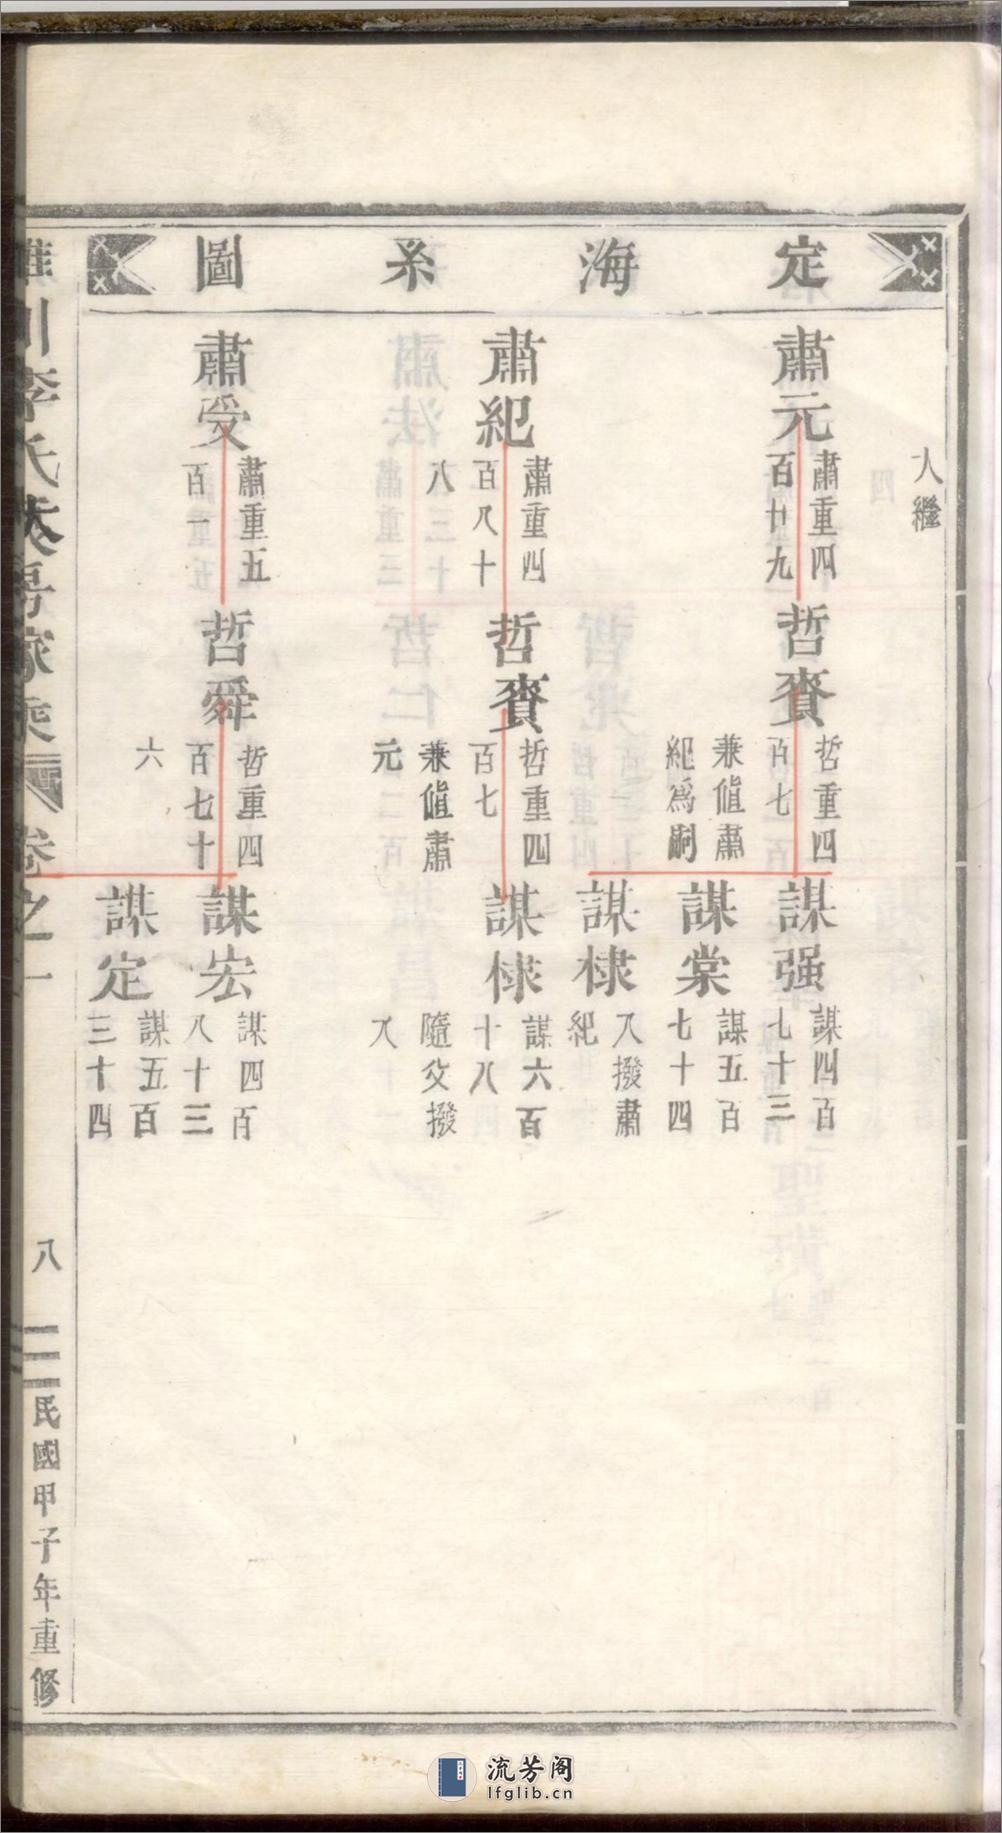 定海系圖
入繼
肅元
肅重四
百廿九
哲賚
哲重四
百七
兼値肅
紀爲嗣
謀强
謀四百
七十三
謀棠
謀五百
七十四
謀棣
入撥肅
紀
肅紀
肅重四
百八十
八
哲賚
哲重四
百七
兼値肅
元
謀棣
謀六百
十八
隨父撥
入
肅受
肅重五
百一
哲舜
哲重四
百七十
六
謀宏
謀四百
八十三
謀定
謀五百
三十四
川李氏
房家乘
卷之一
八
民國甲子年重修
流芳阁
lfglib.cn